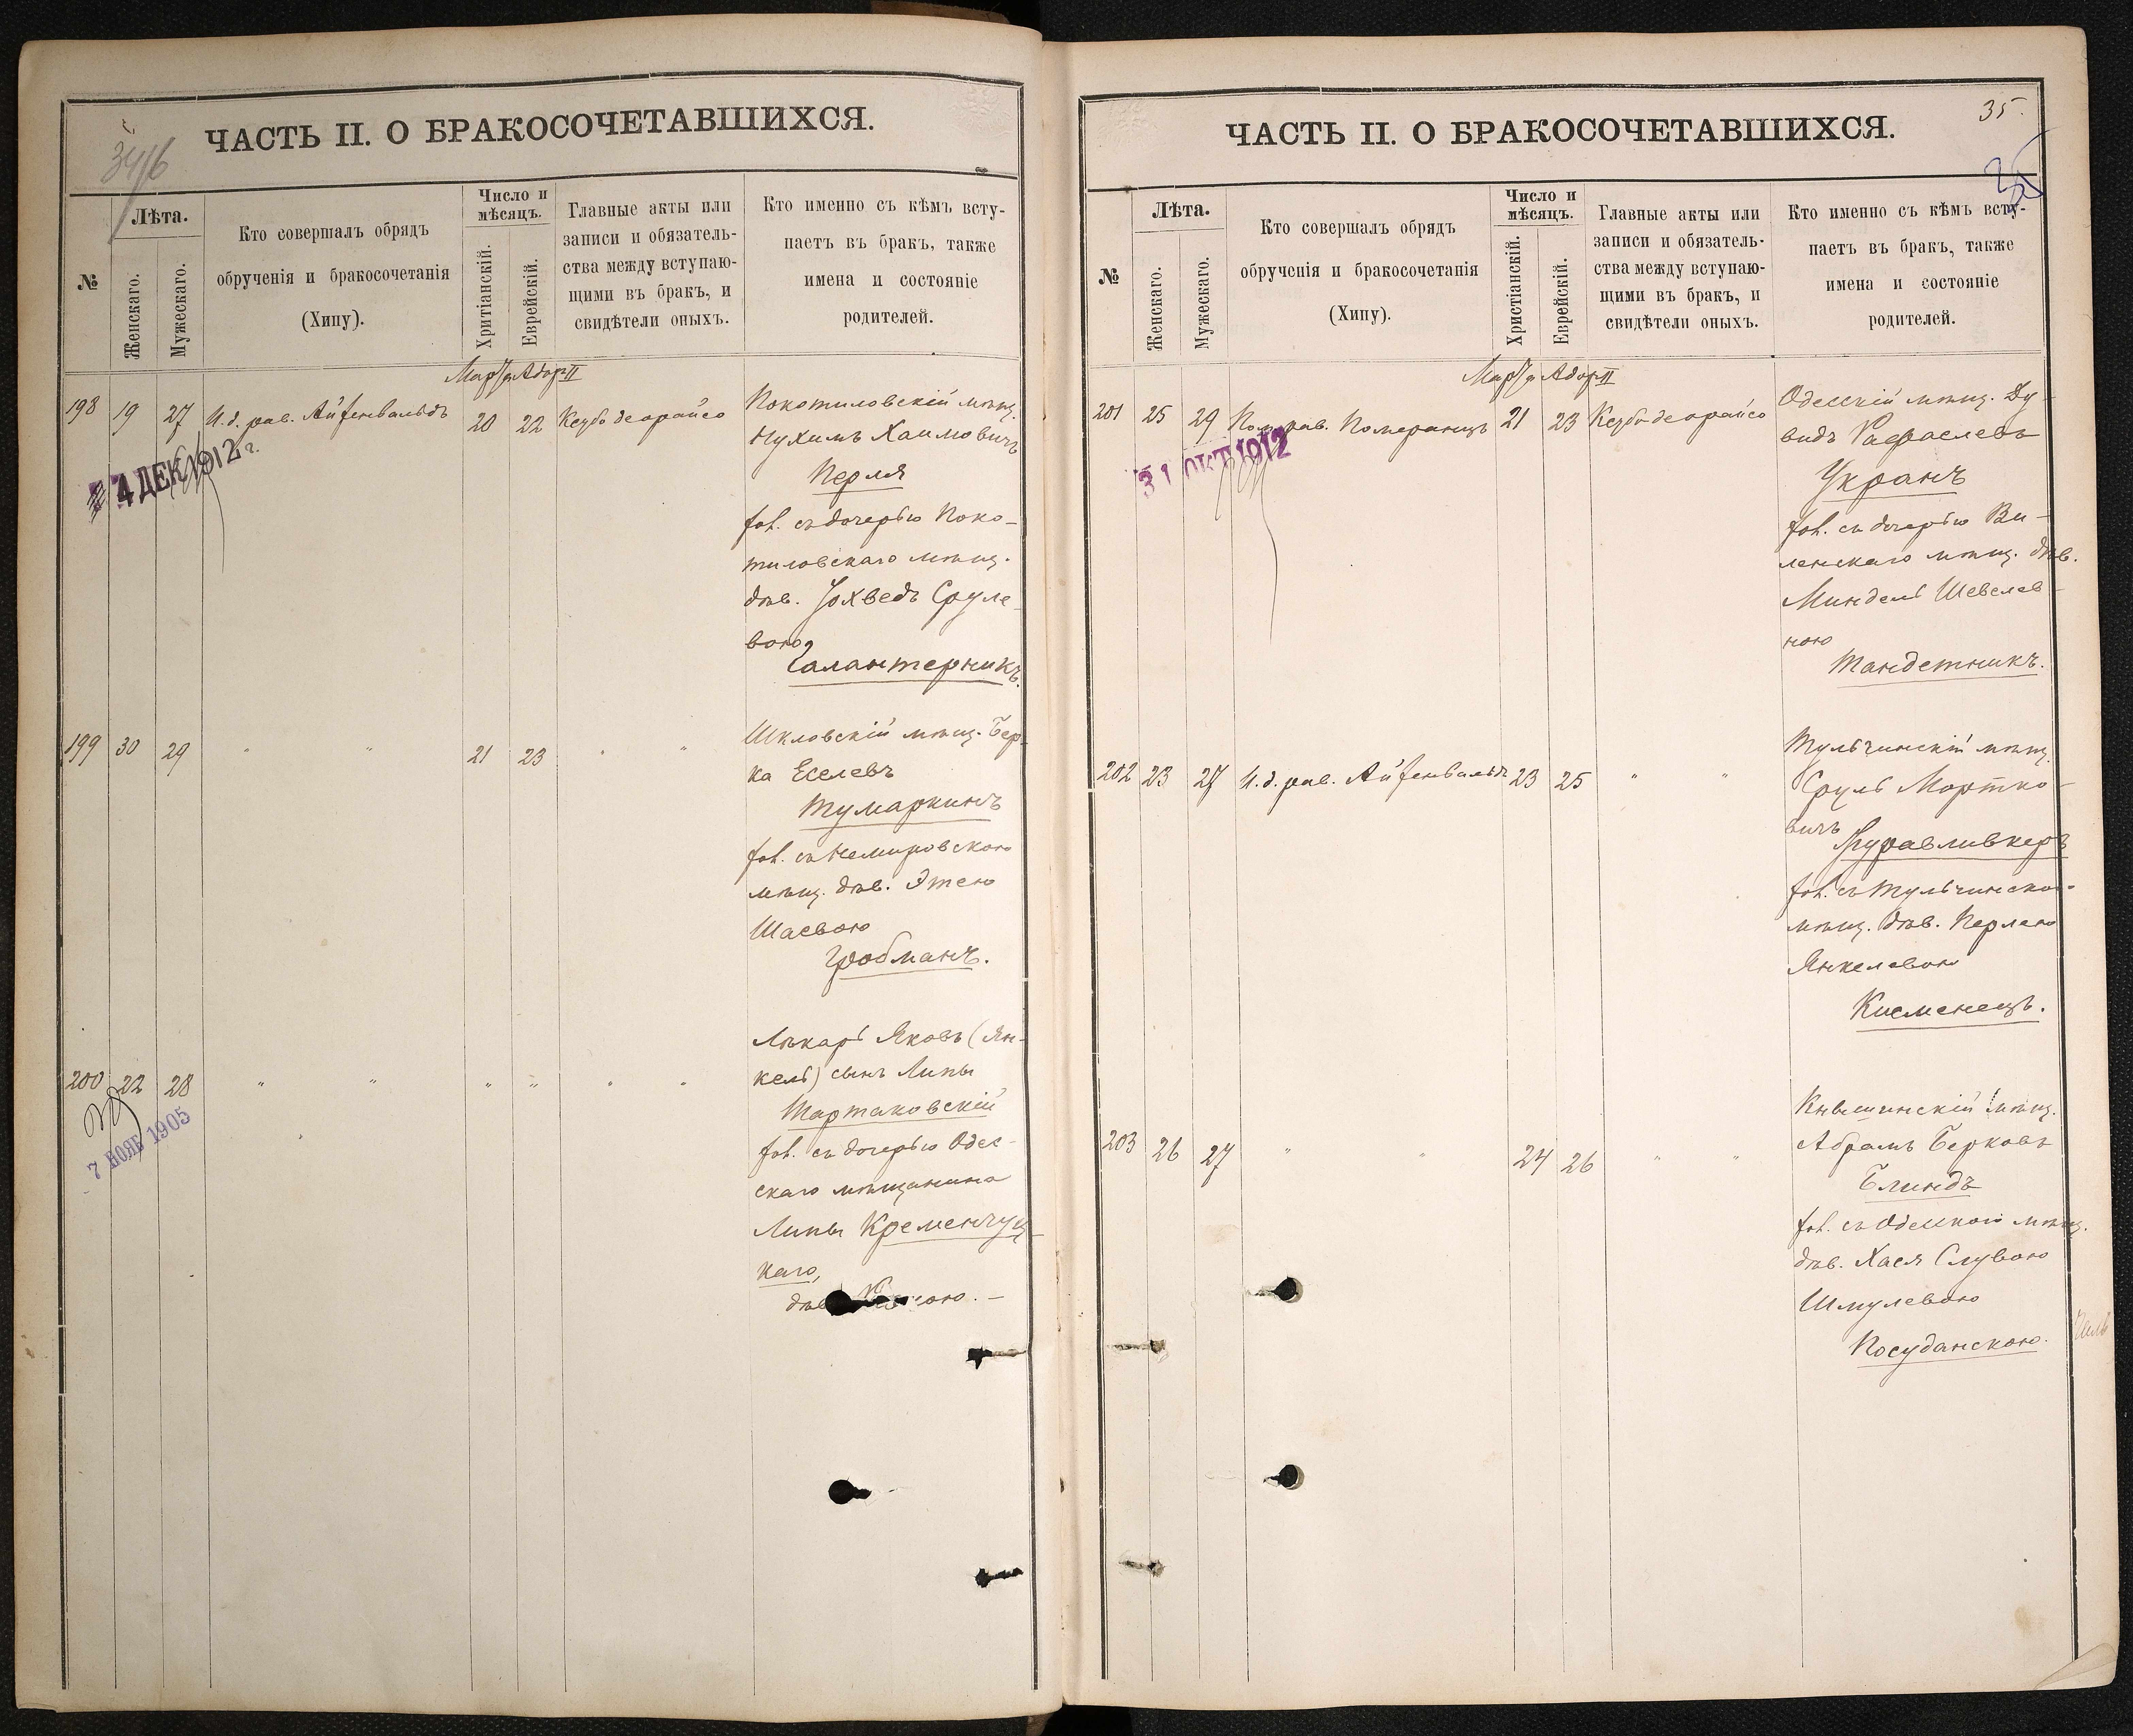 ЧАСТЬ II. О БРАКОСОЧЕТАВШИХСЯ.
№
Лѣта.
Женскаго.
Мужескаго.
Кто совершалъ обрядъ
обрученія и бракосочетанія
(Хипу).
Число и
мѣсяцъ.
Хритіанскій.
Еврейскій.
Главные акты или
записи и обязатель-
ства между вступаю-
щими въ бракъ, и
свидѣтели оныхъ.
Кто именно съ кѣмъ всту-
паетъ въ бракъ, также
имена и состояніе
родителей.
Адаръ II
198 19 27 И. д. рав. Айзенвальдъ 20 22 Ксубо деорайсо
4 ДЕК 1912 г.
Покотиловскій мѣщ.
Нухимъ Хаимовичъ
Перля
хол. съ дочерью Поко-
тиловскаго мѣщ.
дѣв. Іохведъ Сруле-
вою
Галантерникъ.
199 30 29 " " 21 23 " "
Шкловскій мѣщ. Бер-
ка Еселевъ
Тумаркинъ
хол. съ Немировскою
мѣщ. дѣв. Этею
Шаевою
Гробманъ.
200 22 28 " " " " " "
7 НОЯБ 1905
Лѣкарь Яковъ (Ян-
кель) сынъ Липы
Тартаковскій
хол. съ дочерью Одес-
скаго мѣщанина
Липы Кременчуц-
каго,
дѣв.
ЧАСТЬ II. О БРАКОСОЧЕТАВШИХСЯ.
35.
№
Лѣта.
Женскаго.
Мужескаго.
Кто совершалъ обрядъ
обрученія и бракосочетанія
(Хипу).
Число и
мѣсяцъ.
Христіанскій.
Еврейскій.
Главные акты или
записи и обязатель-
ства между вступаю-
щими въ бракъ, и
свидѣтели оныхъ.
Кто именно съ кѣмъ всту-
паетъ въ бракъ, также
имена и состояніе
родителей.
Адаръ II
201 25 29 Пом. рав. Померанцъ 21 23 Ксубо деорайсо
31 ОКТ 1912
Одесскій мѣщ. Ду-
видъ Рафаелевъ
Укранъ
хол. съ дочерью Ви-
ленскаго мѣщ. дѣв.
Миндель Шевелев-
ною
Тандетникъ.
202 23 27 И. д. рав. Айзенвальдъ 23 25 " "
Тульчинскій мѣщ.
Сруль Мортко-
вичъ
Журавливкеръ
хол. съ Тульчинско-
мѣщ. дѣв. Перлею
Янкелевою
Кисменецъ.
203 26 27 " " 24 26 " "
мѣщ.
Абрамъ Берковъ
Блиндъ
хол. съ Одесскою мѣщ.
дѣв. Хася Слувою
Шмулевою
Посуданскою.